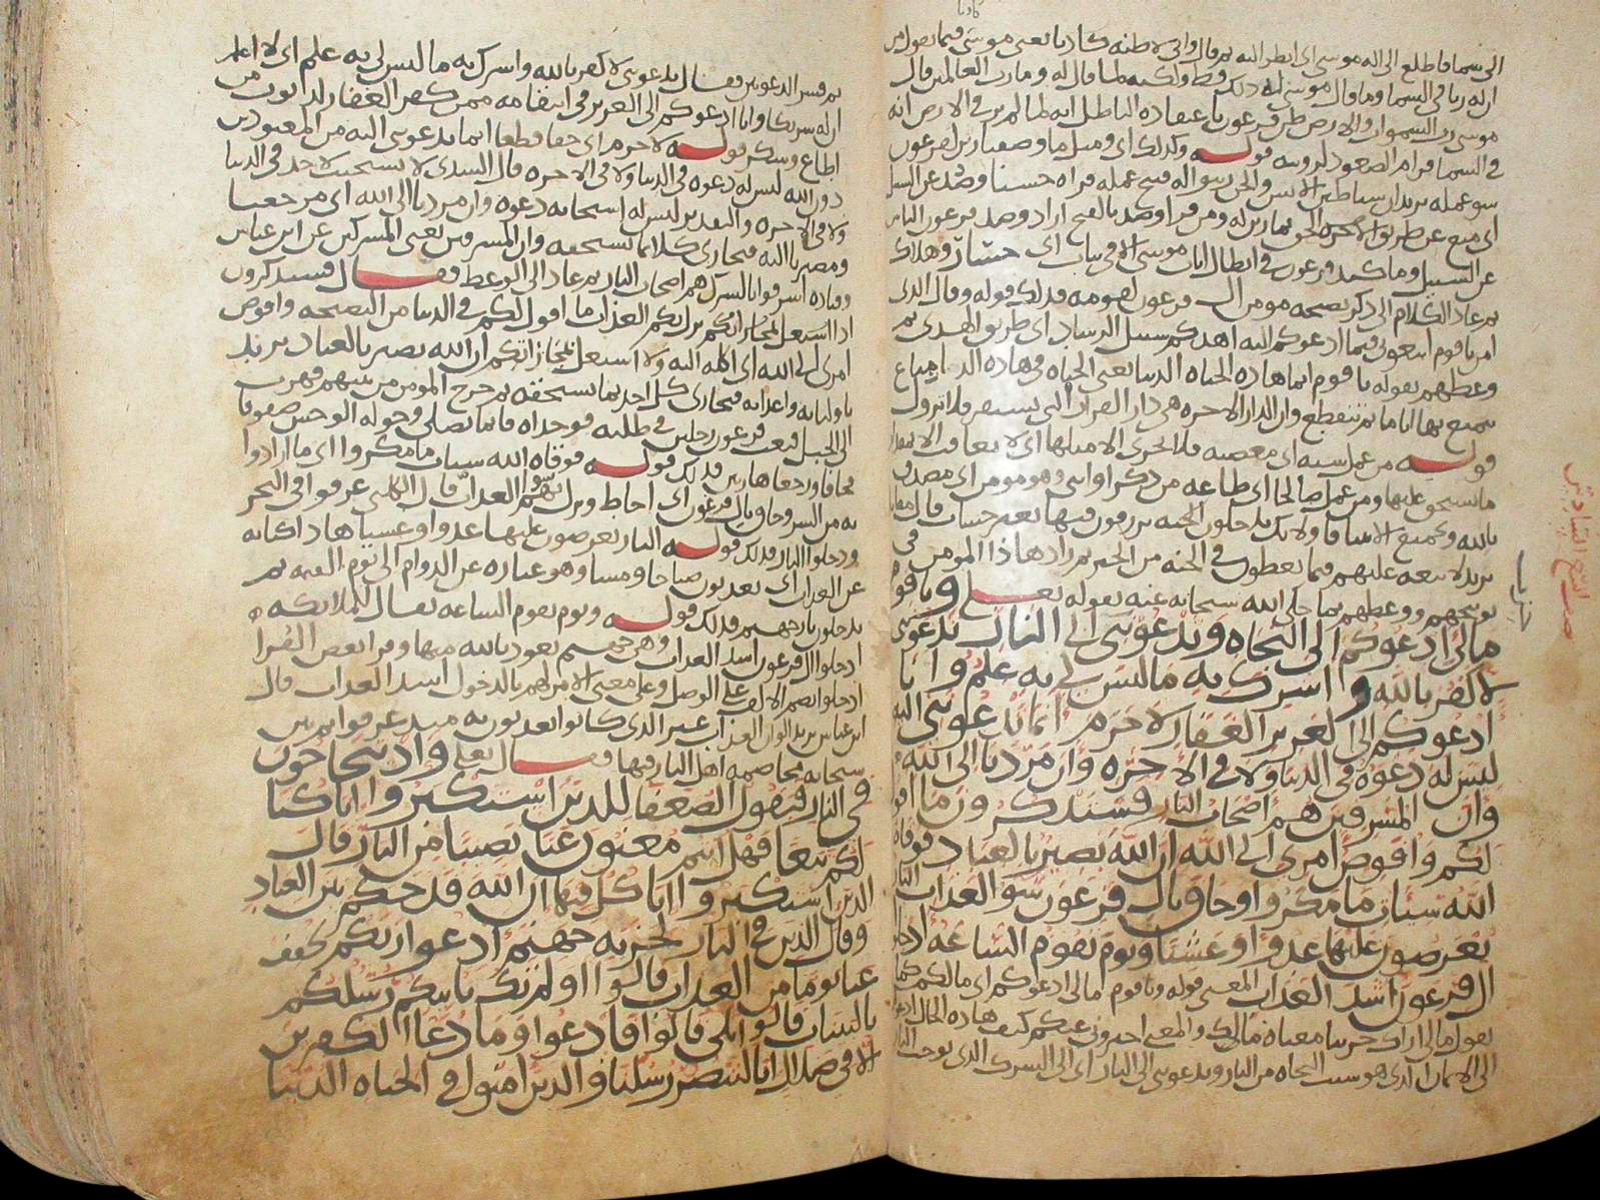 الى السما فاطلع الى اله موسى اى انظر اليه ثم قال وانى لاظنه كاذبا يعنى موسى فيما يقول من
ان له ربا فى السما وما قال موسى له ذلك قط ولكنه لما قال له وما رب العالمين قال
موسى رب السموات والارض ظن فرعون باعتقاده الباطل انه لما لم ير فى الارض انه
فى السما فرام الصعود لرويته قوله وكذلك اى ومثل ما وصفنا زين لفرعون
سو عمله يريد ان شياطين الانس والجن سولوا له قبح عمله فراه حسنا وصد عن السبيل
اى منع عن طريق الحق بما زين له ومن قرا وصد بالفتح اراد وصد فرعون الناس
عن السبيل وما كيد فرعون فى ابطال ايات موسى الا فى تباب اى خسار وهلاك
ثم عاد الكلام الى ذكر نصيحه مومن ال فرعون لقومه فذلك قوله وقال الذى
امن يا قوم اتبعونى فيما ادعوكم اليه اهدكم سبيل الرشاد اى طريق الهدى ثم
وعظهم بقوله يا قوم انما هاذه الحياه الدنيا يعنى الحياه فى هاذه الدنيا متاع
يتمتع بها اياما ثم تنقطع وان الدار الاخره هى دار القرار التى يستقر فلا تزول
قوله من عمل سيئه اى معصيه فلا يجزى الا مثلها اى لا يعاقب الا بمقدار
ما يستحق عليها ومن عمل صالحا اى طاعه من ذكر او انثى وهو مومن اى مصدق
بالله وبجميع الانبيا فاولائك يدخلون الجنه يرزقون فيها بغير حساب قال مقاتل
يريد لا تبعه عليهم فيما يعطون فى الجنه من الخير ثم زاد هاذا المومن فى
توبيخهم ووعظهم بما حكى الله سبحانه عنه بقوله تعلى ويا قوم
مالى ادعوكم الى النجاه وتدعوننى الى النار تدعوننى
لاكفر بالله واشرك به ما ليس لى به علم وانا
ادعوكم الى العزيز الغفار لا جرم انما تدعوننى اليه
ليس له دعوه فى الدنيا ولا فى الاخره وان مردنا الى الله
وان المسرفين هم اصحاب النار فستذكرون ما اقول
لكم وافوض امرى الى الله ان الله بصير بالعباد فوقاه
الله سيات ما مكروا وحاق بال فرعون سو العذاب النار
يعرضون عليها غدوا وعشيا ويوم تقوم الساعه ادخلوا
ال فرعون اشد العذاب المعنى قوله ويا قوم مالى ادعوكم اى مالكم كما
يقول مالى اراك حزينا معناه مالك والمعنى اخبرونى عنكم كيف هاذه الحال ادعوكم
الى الايمان الذى هو سبب النجاه من النار وتدعوننى الى النار اى الى الشرك الذى يوجب النار
ثم فسر الدعوتين فقال تدعوننى لاكفر بالله واشرك به ما ليس لى به علم اى لا اعلم
ان له شريكا وانا ادعوكم الى العزيز فى انتقامه ممن كفر الغفار لذنوب من
اطاع وشكر قوله لا جرم اى حقا قطعا انما تدعوننى اليه من المعبودين
دون الله ليس له دعوه فى الدنيا ولا فى الاخره قال السدى لا يستجيب لاحد فى الدنيا
ولا فى الاخره والتقدير ليس له استجابه دعوه وان مردنا الى الله اى مرجعنا
ومصيرنا اليه فيجازى كلا بما يستحقه وان المسرفين يعنى المشركين عن ابن عباس
وقتاده اسرفوا بالشرك هم اصحاب النار ثم عاد الى الوعظ فقال فستذكرون
اذا نزل بكم العذاب ما اقول لكم فى الدنيا من النصيحه وافوض
امرى الى الله اى اكله اليه ولا استعجل بمجازاتكم ان الله بصير بالعباد يريد
باوليائه واعدائه فيجازى كل احد بما يستحقه ثم خرج المومن من بينهم فهرب
الى الجبل فبعث فرعون رجلين فى طلبه فوجداه قائما يصلى وحوله الوحش صفوفا
فخافا ورجعا هاربين فذلك قوله فوقاه الله سيات ما مكروا اى ما ارادوا
به من الشر وحاق بال فرعون اى احاط ونزل بهم سو العذاب قال الكلبى غرقوا فى البحر
ودخلوا النار فذلك قوله النار يعرضون عليها غدوا وعشيا هاذا كنايه
عن العذاب اى يعذبون صباحا ومسا وهو عباره عن الدوام الى يوم القيمه ثم
يدخلون نار جهنم فذلك قوله ويوم تقوم الساعه يقال للملائكه
ادخلوا ال فرعون اشد العذاب وهى جهنم نعوذ بالله منها وقرا بعض القرا
ادخلوا بضم الالف على الوصل وعلى معنى الامر لهم بالدخول اشد العذاب قال
ابن عباس يريد الوان العذاب غير الذى كانوا يعذبون به منذ غرقوا ثم بين
سبحانه مخاصمه اهل النار فيها فقال تعلى واذ يتحاجون
فى النار فيقول الضعفا للذين استكبروا انا كنا
لكم تبعا فهل انتم مغنون عنا نصيبا من النار قال
الذين استكبروا انا كل فيها ان الله قد حكم بين العباد
وقال الذين فى النار لخزنه جهنم ادعوا ربكم يخفف
عنا يوما من العذاب قالوا اولم تك تاتيكم رسلكم
بالبينات قالوا بلى قالوا فادعوا وما دعا الكفرين
الا فى ضلال انا لننصر رسلنا والذين امنوا فى الحياه الدنيا